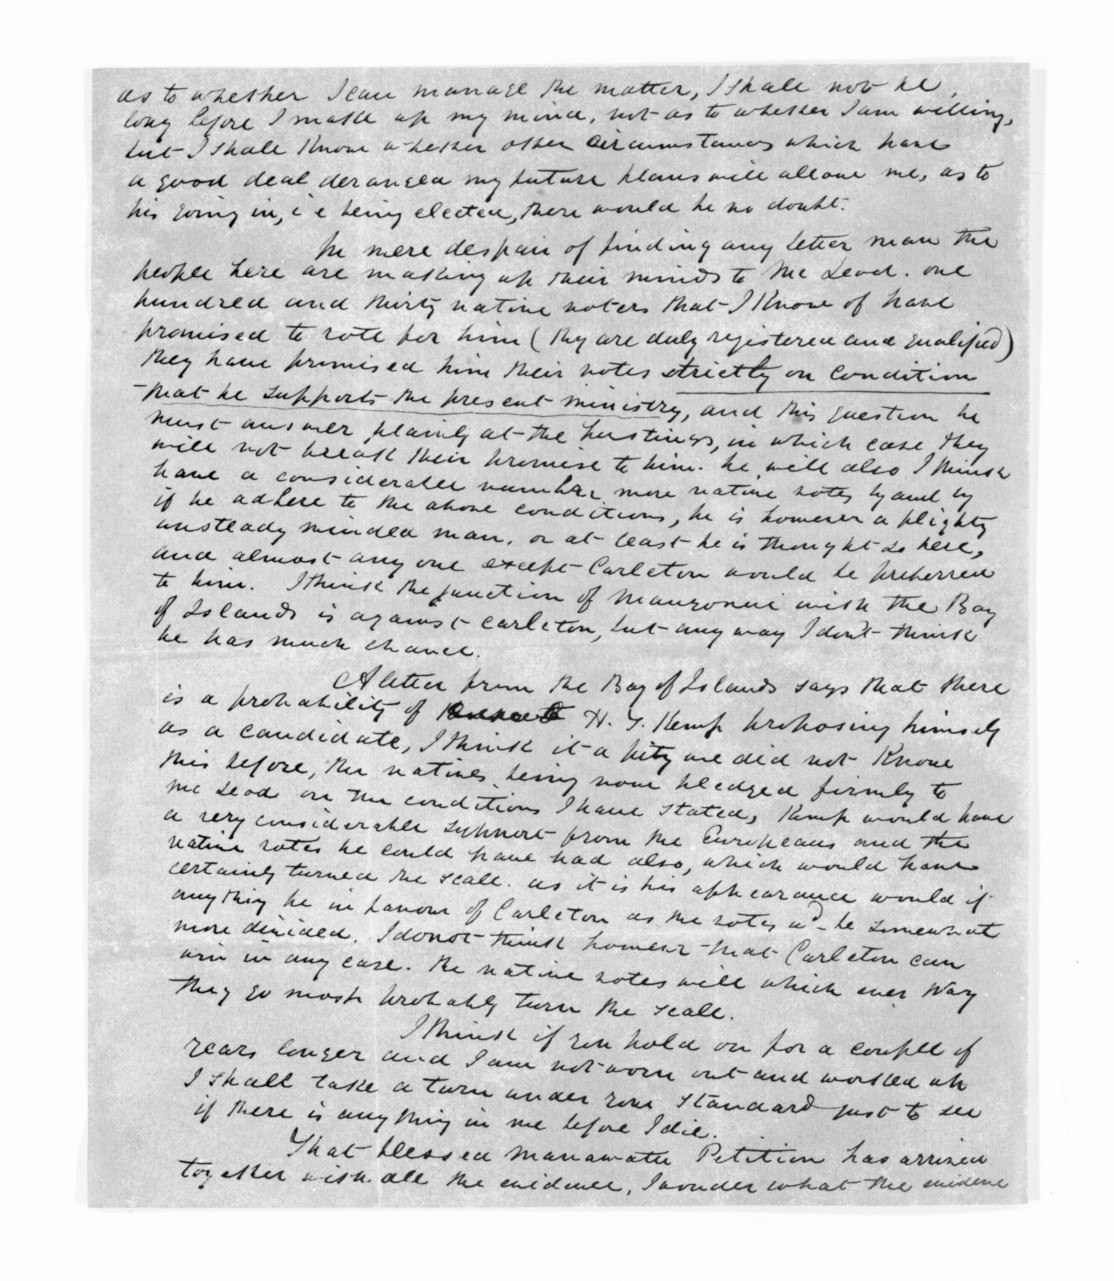 as to whether I can manage the matter, I shall not be
long before I make up my mind, not as to whether I am willing,
but I shall Know whether other circumstances which have
a good deal deranged my future plans will allow me, as to
his going in, i e being elected, there would be no doubt.
In mere despair of finding any better man the
people here are making up their minds to Mc Leod. one
hundred and thirty native voters that I Know of have
promised to vote for him (they are duly registered and qualified)
they have promised him their votes strictly on condition
that he supports the present ministry, and this question he
must answer plainly at the hustings, in which case they
will not break their promise to him. he will also I think
have a considerable number more native votes by and by
if he adhere to the above conditions, he is however a flighty
unsteady minded man, or at least he is thought so here,
and almost any one except Carleton would be preferred
to him. I think the junction of Mangonui with the Bay
of Islands is against Carleton, but any way I don't think
he has much chance.
A letter from the Bay of Islands says that there
is a probability of H. T. Kemp proposing himself
as a candidate, I think it a pity we did not Know
this before, the natives being now pledged firmly to
Mc Leod on the conditions I have stated, Kemp would have
a very considerable support from the Europeans and the
native votes he could have had also, which would have
certainly turned the scale. as it is his appearance would if
anything be in favour of Carleton as the votes wd be somewhat
more divided. I do not think however that Carleton can
win in any case. the native votes will which ever way
they go most probably turn the scale.
I think if you hold on for a couple of
years longer and I am not worn out and worked up
I shall take a turn under your Standard just to see
if there is anything in me before I die.
That blessed Manawatu Petition has arrived
together with all the evidence, I wonder what the evidence